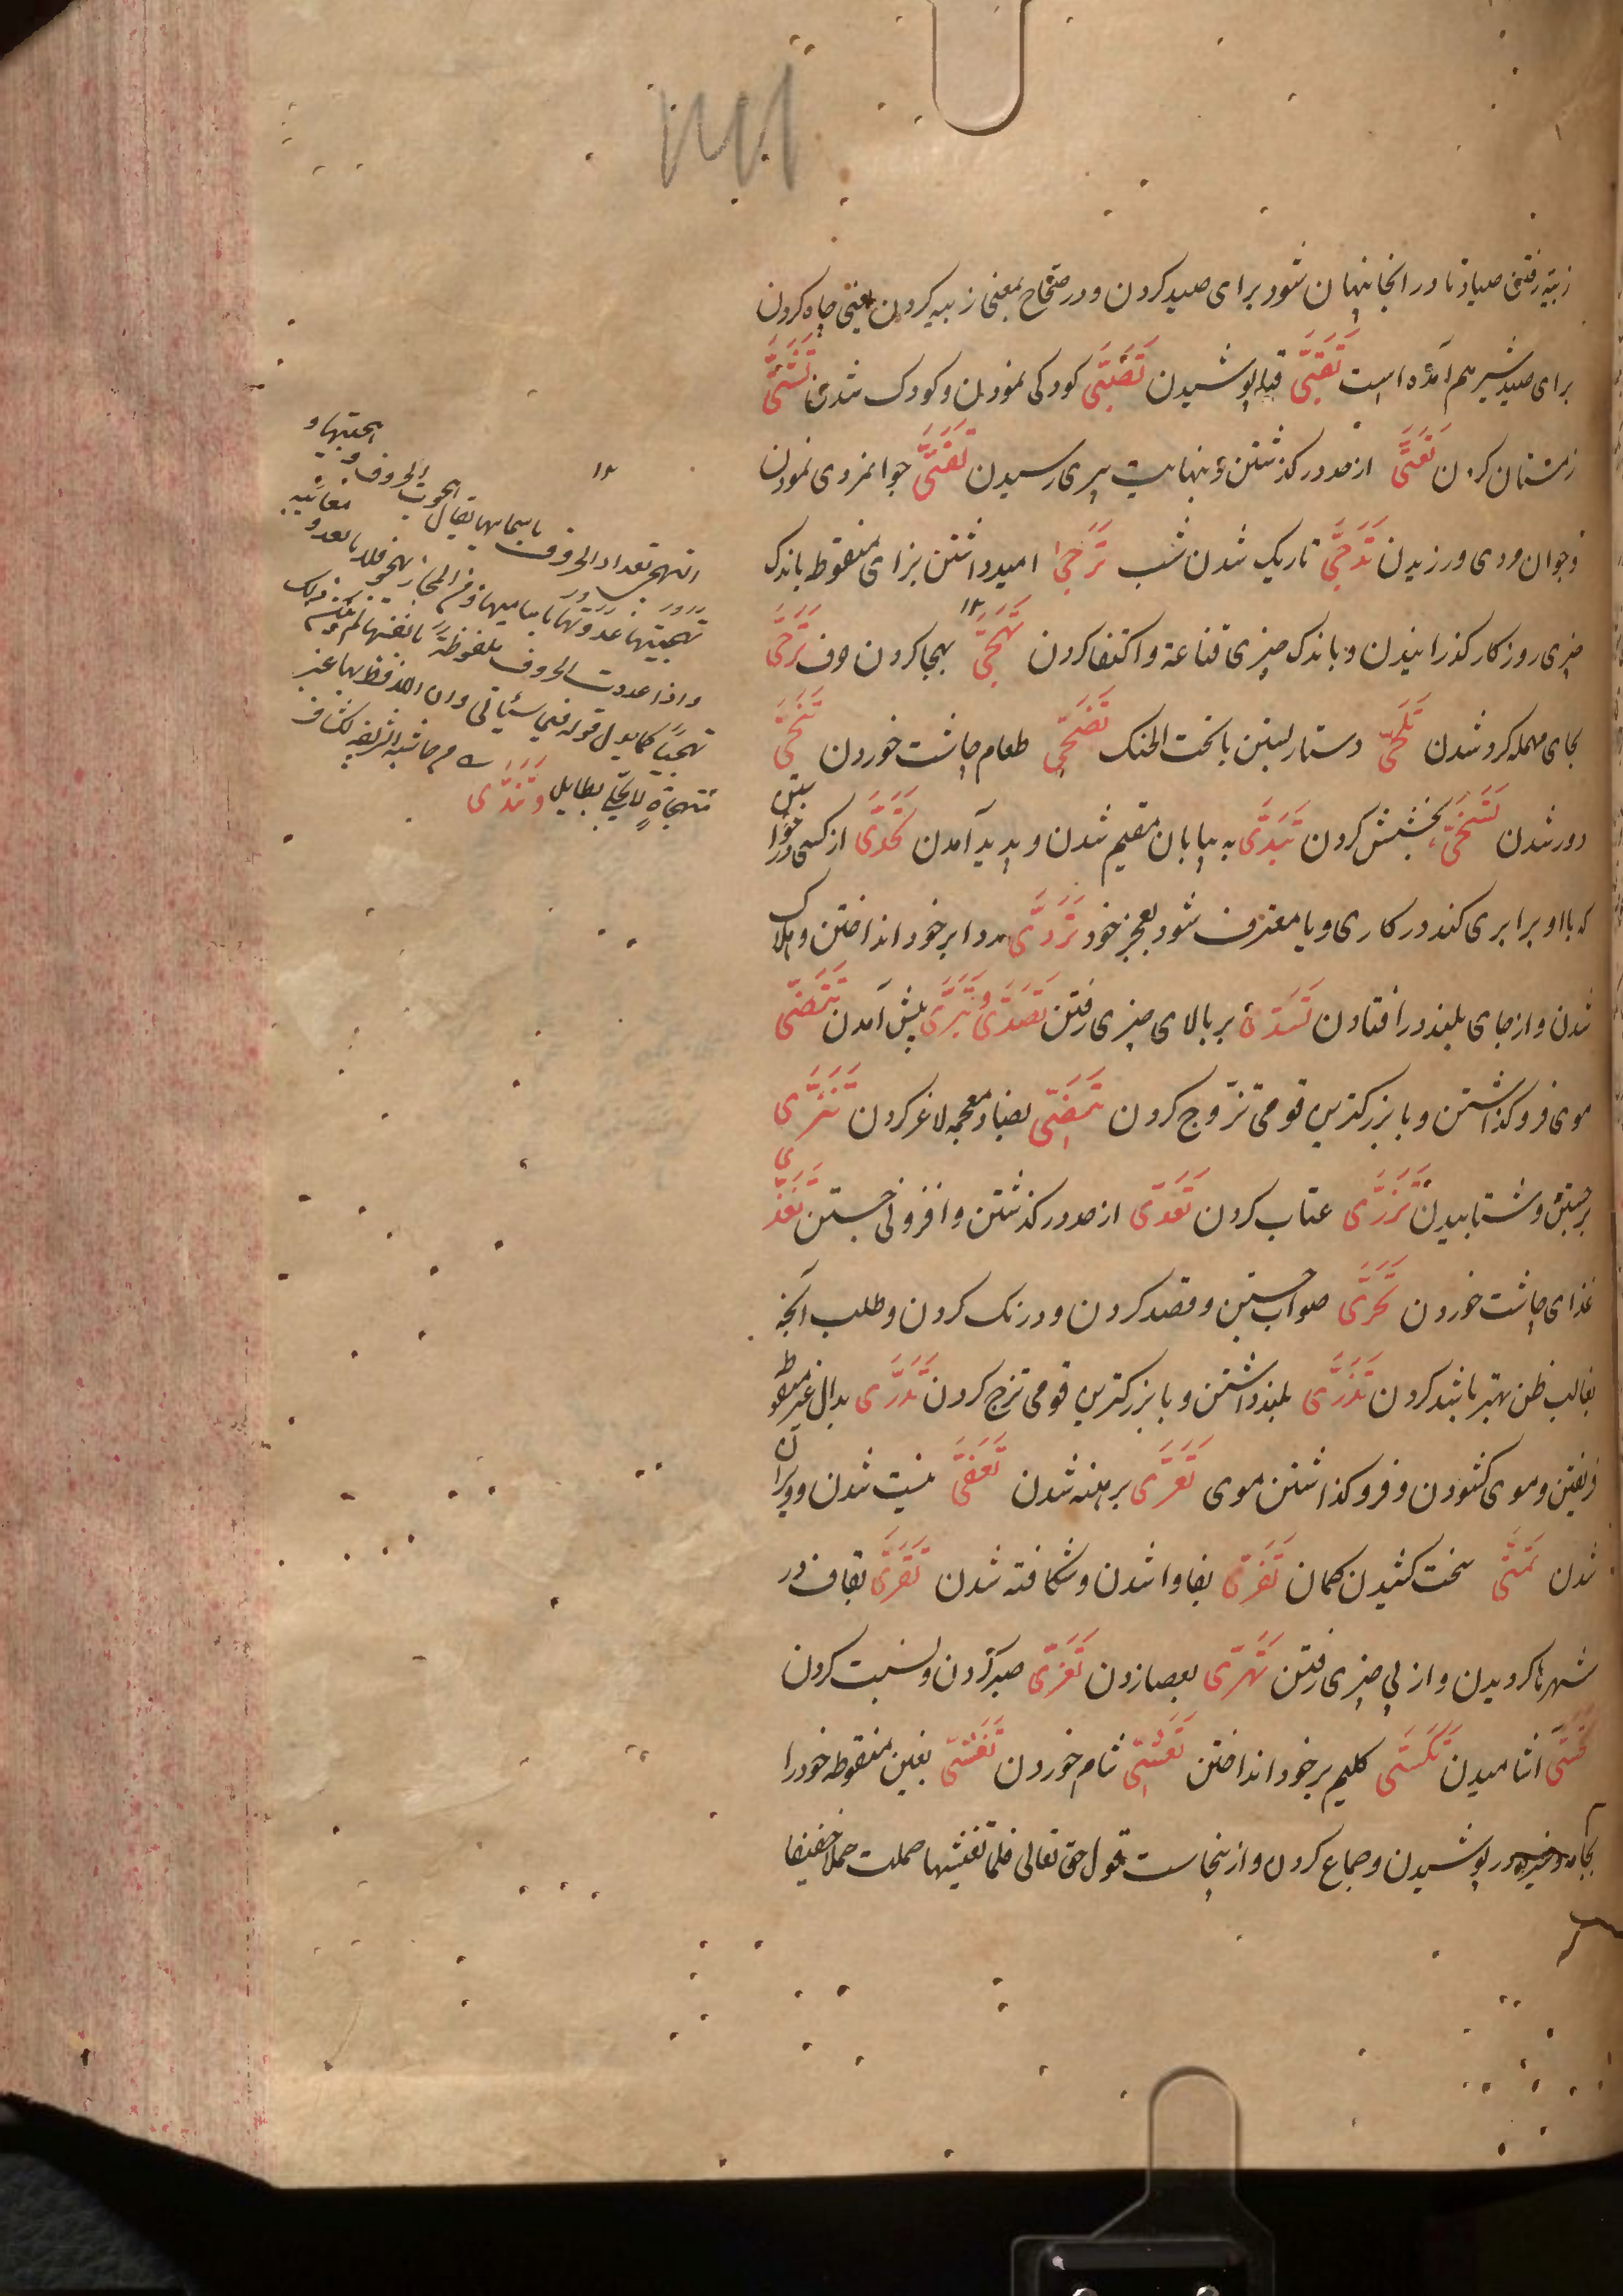 زبیه رفتن صیاد تا در انجا پنهان شود برای صید کردن و در صحاح بمعنی زبیه کردن یعنی چاه کردن
برای صید شیر هم آمده است تَقَبِّی قبا پوشیدن تَصَبِّی کودکی نمودن و کودک شدن تَشَتِّی
زمستان کردن تَعَتِّی از حد در کذشتن و بنهایت پیری رسیدن تَفَتِّی جوانمردی نمودن
و جوان مردی ورزیدن تَدَجِّی تاریک شدن شب تَرَجِّی امید داشتن بزای منقوطه باندک
چیزی روزکار کذرانیدن و باندک چیزی قناعة و اکتفا کردن تَهَجِّی ۱۲ بهجا کردن حرف تَرَحِّی
بحای مهمله کرد شدن تَلَحِّی دستار بستن باتحت الحنک تَضَحِّی طعام چاشت خوردن تَنَحِّی
دور شدن تَسَخِّی بخشش کردن تَبَدِّی به بیابان مقیم شدن و پدید آمدن تَحَدِّی از کسی درخواستن
که با او برابری کند در کاری و یا معترف شود بعجز خود تَرَدِّی ردا بر خود انداختن و هلاک
شدن و از جای بلند در افتادن تَسَدِّی بر بالای چیزی رفتن تَصَدِّی و تَبَرِّی پیش آمدن تَنَصِّی
موی فرو کذاشتن و با بزرکترین قومی تزوج کردن تَنَضِّی بضاد معجمه لاغر کردن تَنَزِّی
برجستن و شتابیدن تَزَرِّی عتاب کردن تَعَدِّی از حد در کذشتن و افزونی جستن تَغَدِّی
غذای چاشت خوردن تَحَرِّی صواب جستن و قصد کردن و درنک کردن و طلب آنچه
بغالب ظن بهتر باشد کردن تَذَرِّی بلند داشتن و با بزرکترین قومی تزوج کردن تَدَرِّی بدال غیر منقوط
فریفتن و موی کشودن و فرو کذاشتن موی تَعَرِّی برهنه شدن تَعَفِّی نیست شدن و ویران
شدن تَمَتِّی سخت کشیدن کمان تَفَرِّی بفا وا شدن و شکافته شدن تَقَرِّی بقاف در
شهرها کردیدن و از پی چیزی رفتن تَهَرِّی بعصا زدن تَعَزِّی صبر کردن و نسبت کردن
تَحَسِّی اشامیدن تَکَسِّی کلیم بر خود انداختن تَعَشِّی شام خوردن تَغَشِّی بغین منقوطه خود را
بجامه در پوشیدن و جماع کردن و ازینجاست قول حق تعالی فلما تغشیها حملت حملا خفیفا
۱۲
التهجی تعداد الحروف باسمائها یقال
تهجیتها عددتها باسامیها و من المجاز
واذا عددت الحروف ملفوظة بانفسها لم یکن ذلک
تهجیا